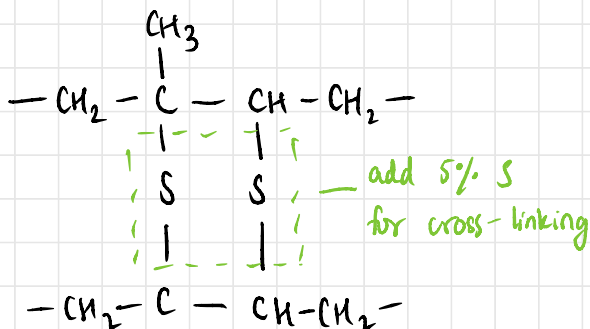 CH3
— CH2 — C — CH — CH2 —
S S
add 5% S
for cross-linking
— CH2 — C — CH-CH2 —